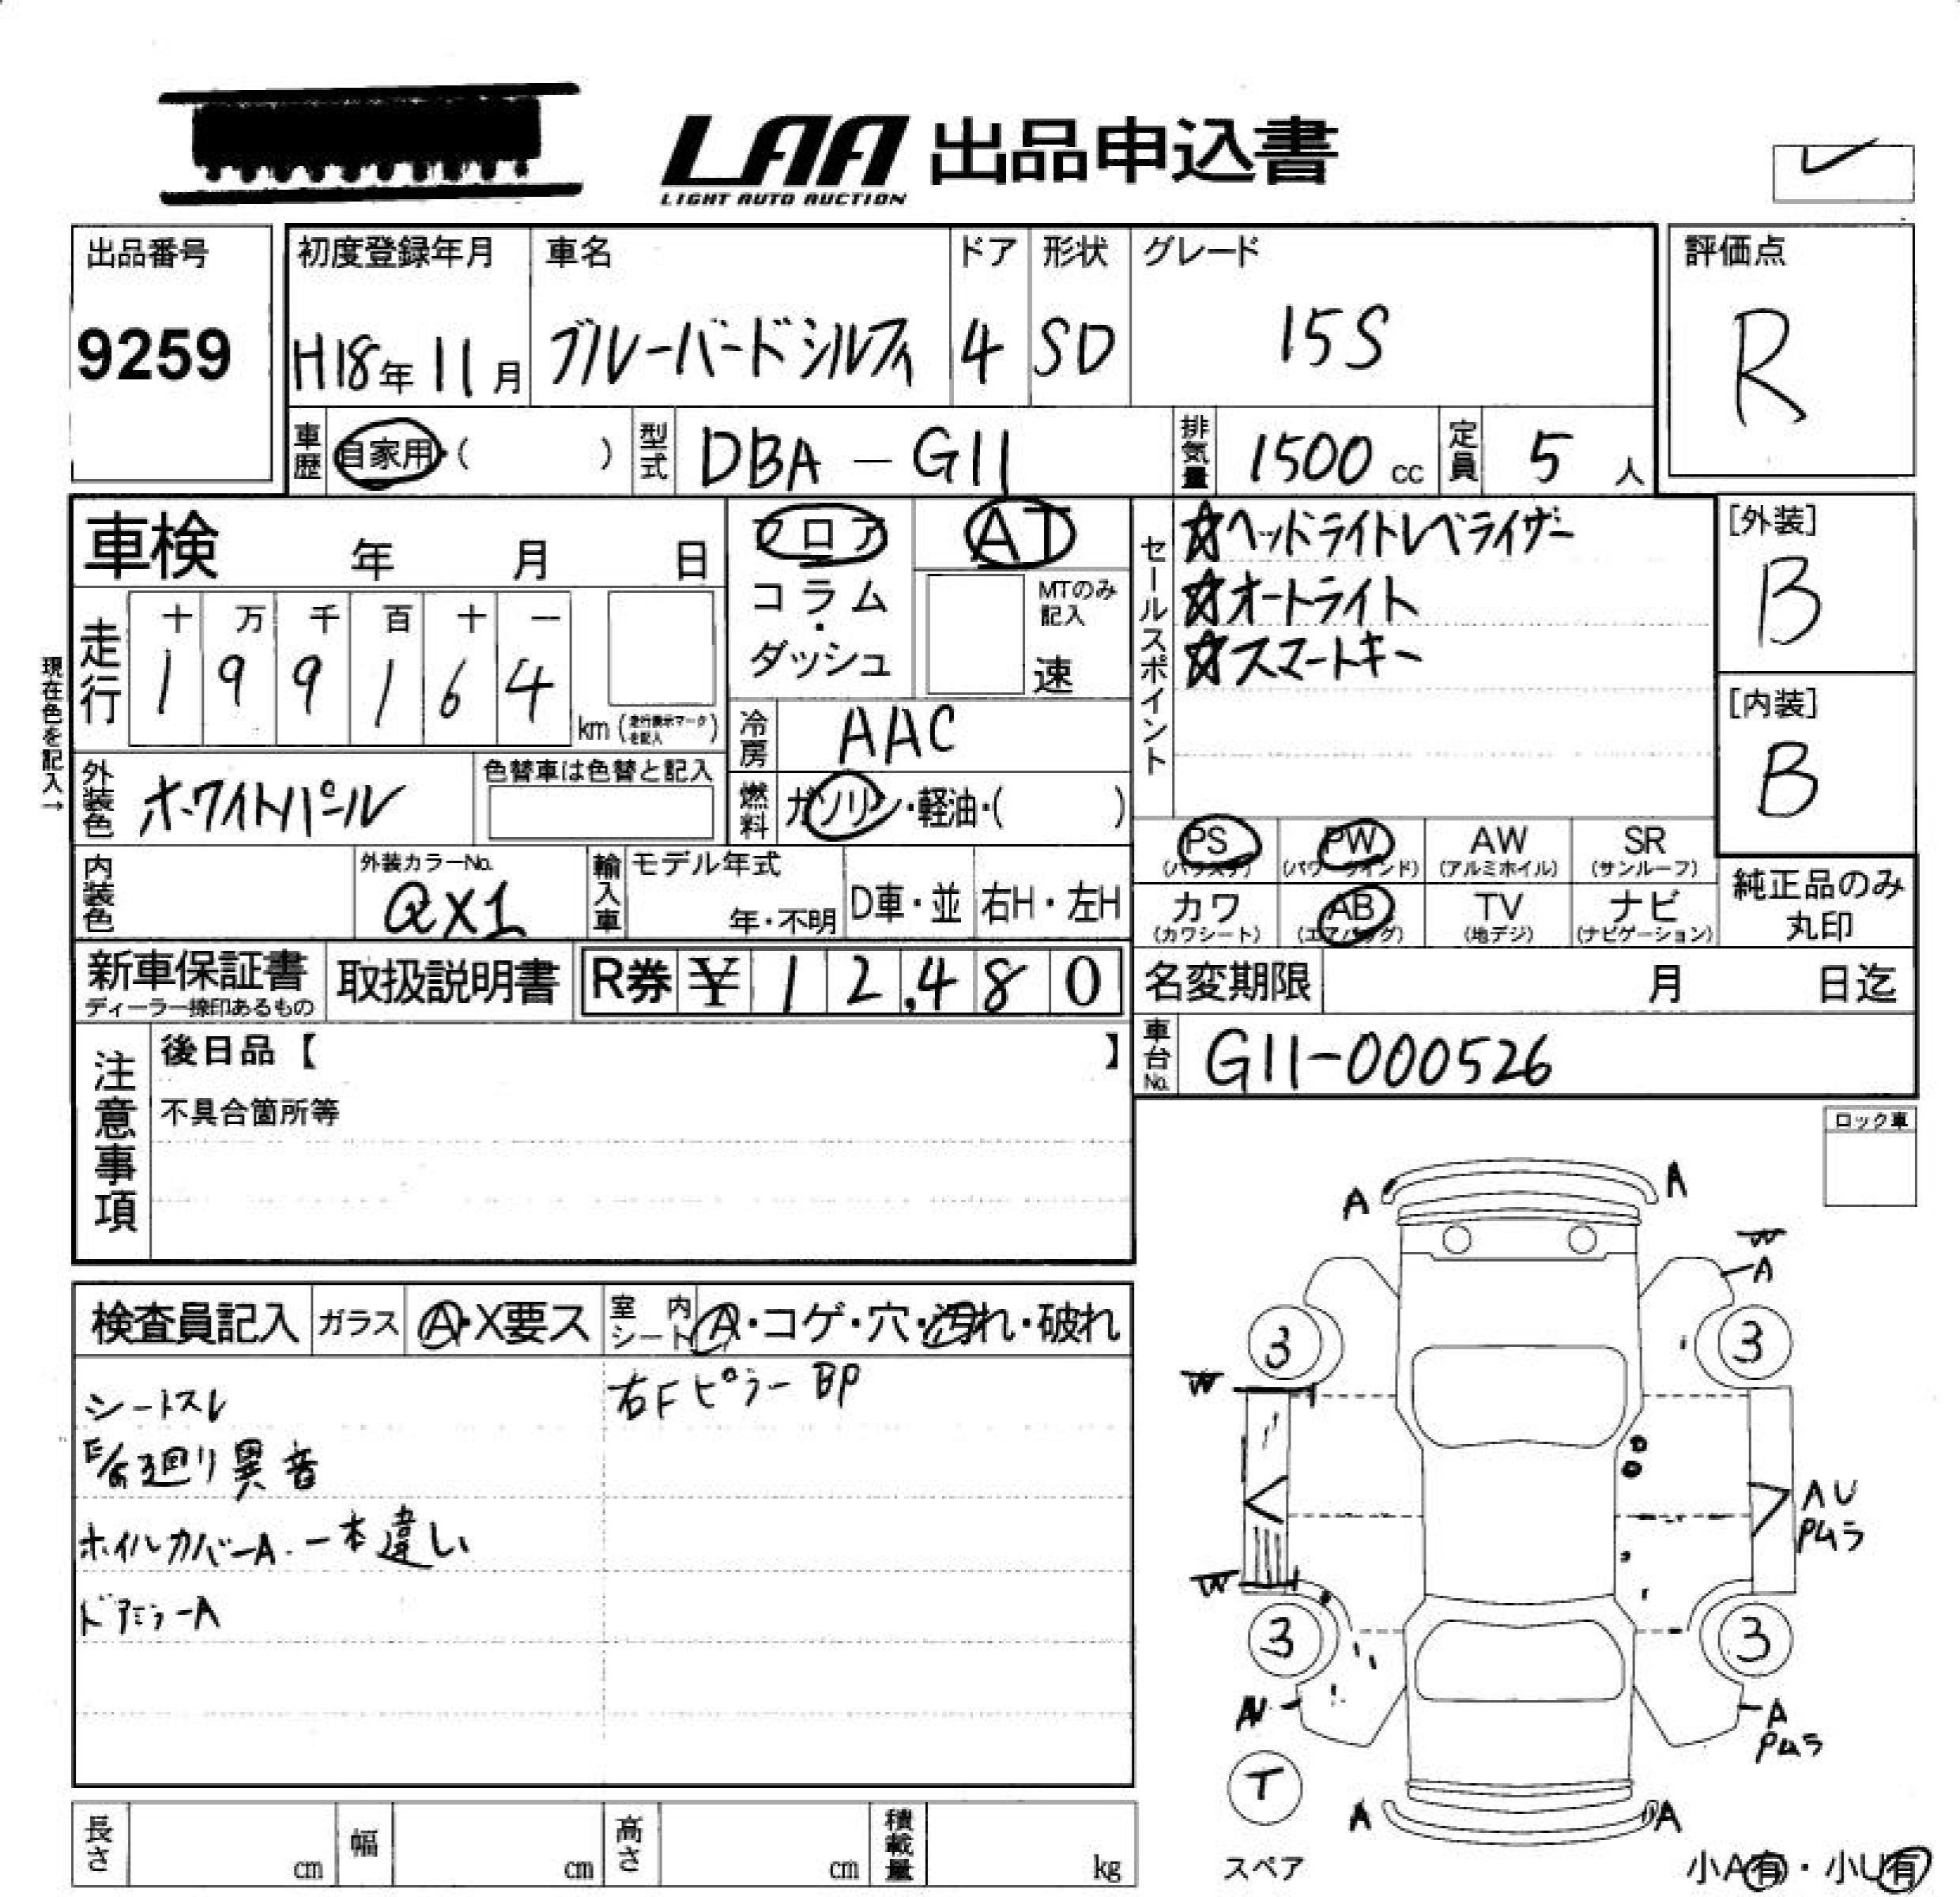 LAA 出品申込書
LIGHT AUTO AUCTION
出品番号
9259
初度登録年月
H18年 11月
車名
ブルーバードシルフィ
ドア
4
形状
SD
グレード
15S
評価点
R
車歴
自家用・( )
型式
DBA - G11
排気量
1500 cc
定員
5 人
車検 年 月 日
走行
十 万 千 百 十 一
1 9 9 1 6 4
km (走行表示マークを記入)
現在色を記入→
フロア
コラム
・
ダッシュ
AT
MTのみ
記入
速
セールスポイント
☆ヘッドライトレベライザー
☆オートライト
☆スマートキー
[外装]
B
[内装]
B
冷房
AAC
燃料
ガソリン・軽油・( )
外装色
ホワイトパール
色替車は色替と記入
内装色
外装カラーNo.
QX1
輸入車
モデル年式
年・不明
D車・並
右H・左H
PS
(パワステ)
PW
(パワーウインド)
AW
(アルミホイル)
SR
(サンルーフ)
カワ
(カワシート)
AB
(エアバッグ)
TV
(地デジ)
ナビ
(ナビゲーション)
純正品のみ
丸印
新車保証書
ディーラー捺印あるもの
取扱説明書
R券 ¥ 1 2,4 8 0
名変期限 月 日迄
車台No.
G11-000526
注意事項
後日品【 】
不具合箇所等
ロック車
検査員記入
ガラス
A・X要ス
室内
シート
A・コゲ・穴・汚れ・破れ
シートスレ
右Fピラー BP
廻り異音
ホイルカバーA.一本違い
ドアミラーA
A
A
W
A
3
3
W
A U
W
3
3
A
T
スペア
A
A
小A有・小U有
長さ cm
幅 cm
高さ cm
積載量 kg